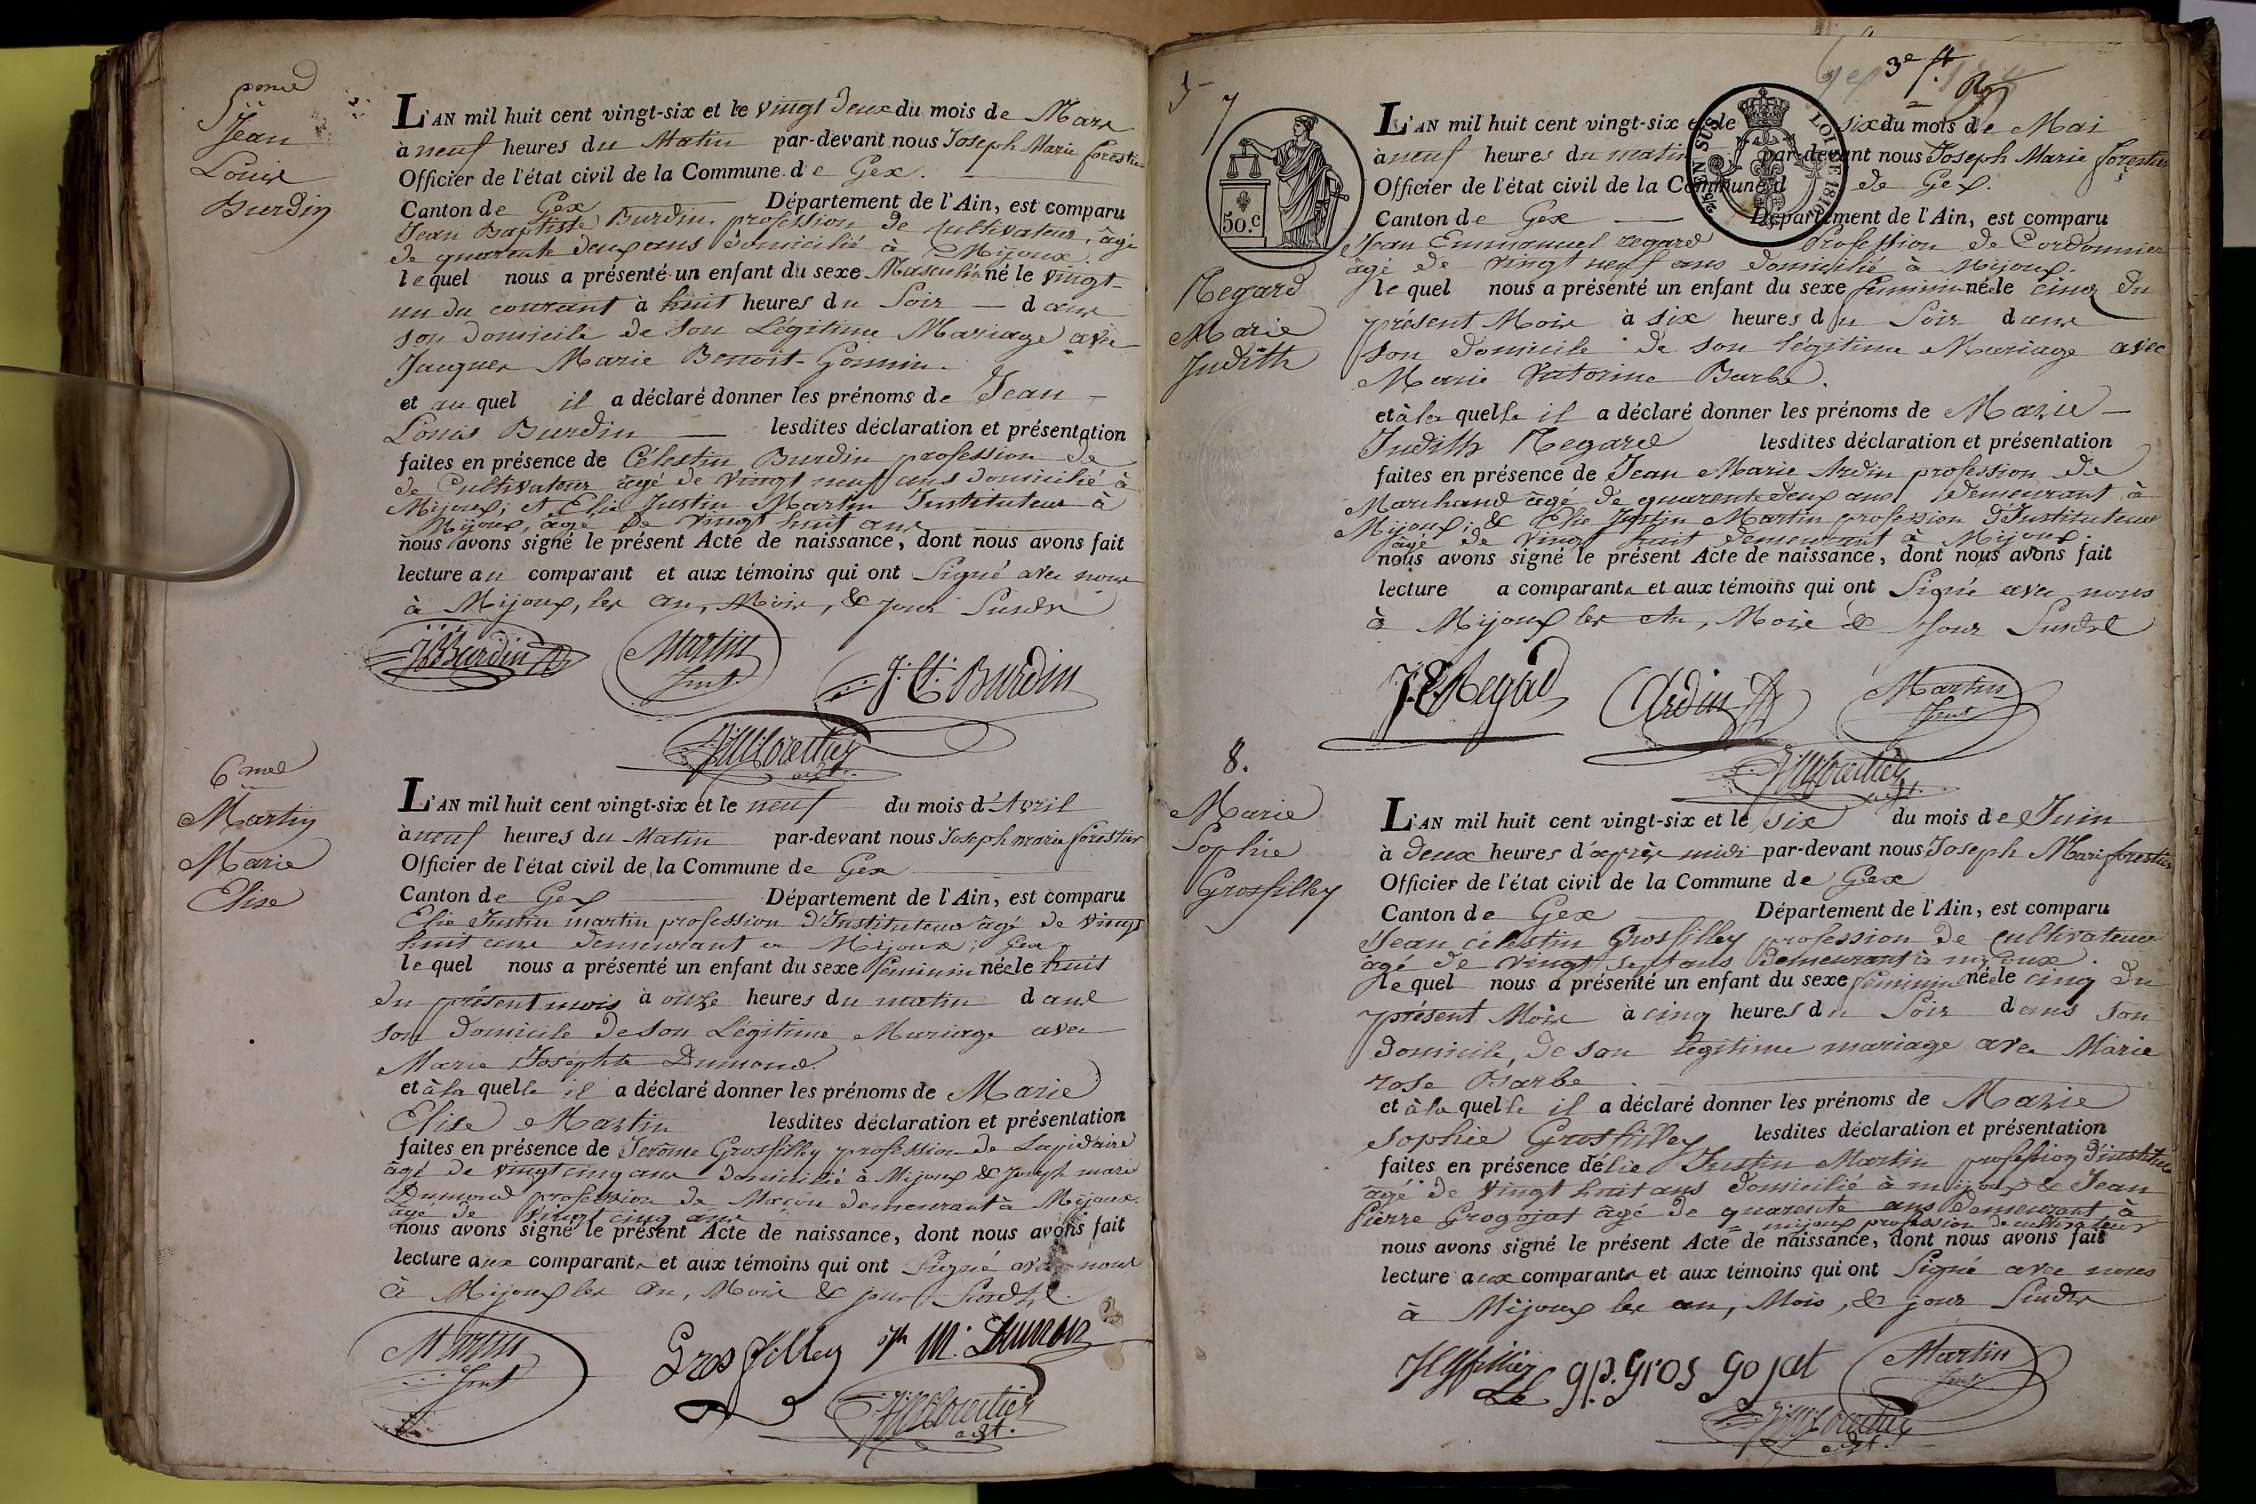 5me
Jean
Louis
Burdin
L'AN mil huit cent vingt-six et le vingt deux du mois de Mars
à neuf heures du Matin par-devant nous Joseph Marie forestier
Officier de l'état civil de la Commune de Gex.
Canton de Gex Département de l'Ain, est comparu
Jean Baptiste Burdin profession de Cultivateur, âgé
de quarente deux ans domicilié à Mijoux.
lequel nous a présenté un enfant du sexe Masculin né le vingt
un du courant à huit heures du Soir dans
son domicile de son Légitime Mariage avec
Jacques Marie Benoit-Gonnin.
et au quel il a déclaré donner les prénoms de Jean
Louis Burdin lesdites déclaration et présentation
faites en présence de Célestin Burdin profession de
de Cultivateur âgé de vingt neuf ans domicilié à
Mijoux, et Elie Justin Martin Instituteur à
Mijoux, âgé de vingt huit ans
nous avons signé le présent Acte de naissance, dont nous avons fait
lecture au comparant et aux témoins qui ont Signé avec nous
à Mijoux, les an, Mois, & jour Susdis
JB Burdin Martin Inst. J. C. Burdin
JM Forestier adjt.
6me
Martin
Marie
Elise
L'AN mil huit cent vingt-six et le neuf du mois d'Avril
à neuf heures du Matin par-devant nous Joseph marie forestier
Officier de l'état civil de la Commune de Gex
Canton de Gex Département de l'Ain, est comparu
Elie Justin martin profession d'Instituteur âgé de vingt
huit ans demeurant à Mijoux;
lequel nous a présenté un enfant du sexe féminin née le huit
du présent mois à onze heures du matin dans
son domicile de son Légitime Mariage avec
Marie Josephte Dumond.
et à la quelle il a déclaré donner les prénoms de Marie
Elise Martin lesdites déclaration et présentation
faites en présence de Jerôme Grosfilley profession de Lapidaire
âgé de vingt cinq ans domicilié à Mijoux & Joseph marie
Dumond profession de Maçon demeurant à Mijoux.
âgé de vingt cinq ans
nous avons signé le présent Acte de naissance, dont nous avons fait
lecture aux comparants et aux témoins qui ont Signé avec nous
à Mijoux les an, Mois & jour Susdis.
Martin Inst Gros filley jh M. Dumon
JM Forestier adjt.
3e
7
50.c
BIEN SUS
LOI DE 1816
Regard
Marie
Judith
L'AN mil huit cent vingt-six et le six du mois de Mai
à neuf heures du matin par-devant nous Joseph Marie forestier
Officier de l'état civil de la Commune d de Gex.
Canton de Gex Département de l'Ain, est comparu
Jean Emmanuel regard Profession de Cordonnier
âgé de vingt neuf ans domicilié à Mijoux.
lequel nous a présenté un enfant du sexe féminin née le cinq du
présent Mois à six heures du Soir dans
son domicile de son légitime Mariage avec
Marie Victorine Barbe.
et à la quelle il a déclaré donner les prénoms de Marie
Judith Regard lesdites déclaration et présentation
faites en présence de Jean Marie Ardin profession de
Marchand âgé de quarente deux ans demeurant à
Mijoux; & Elie Justin Martin profession d'Instituteur
âgé de vingt huit demeurant à Mijoux.
nous avons signé le présent Acte de naissance, dont nous avons fait
lecture a comparants et aux témoins qui ont Signé avec nous
à Mijoux les An, Mois & Jour Susdis
J. E Regad Ardin Martin Inst
JM Forestier adjt.
8.
Marie
Sophie
Grosfilley
L'AN mil huit cent vingt-six et le six du mois de Juin
à deux heures d'après midi par-devant nous Joseph Marie forestier
Officier de l'état civil de la Commune de Gex
Canton de Gex Département de l'Ain, est comparu
Jean célestin Grosfilley profession de cultivateur
âgé de vingt sept ans demeurant à mijoux.
lequel nous a présenté un enfant du sexe féminin née le cinq du
présent Mois à cinq heures du Soir dans son
domicile, de son légitime mariage avec Marie
rose Barbe
et à la quelle il a déclaré donner les prénoms de Marie
Sophie Grosfilley lesdites déclaration et présentation
faites en présence d'élie Justin Martin profession d'institu
âgé de vingt huit ans domicilié à mijoux & Jean
Pierre Grogojat âgé de quarente ans demeurant à
mijoux profession de cultivateur
nous avons signé le présent Acte de naissance, dont nous avons fait
lecture aux comparants et aux témoins qui ont Signé avec nous
à Mijoux les an, Mois, & jour Susdis
gp. gros gojat Martin Inst
JM Forestier adjt.